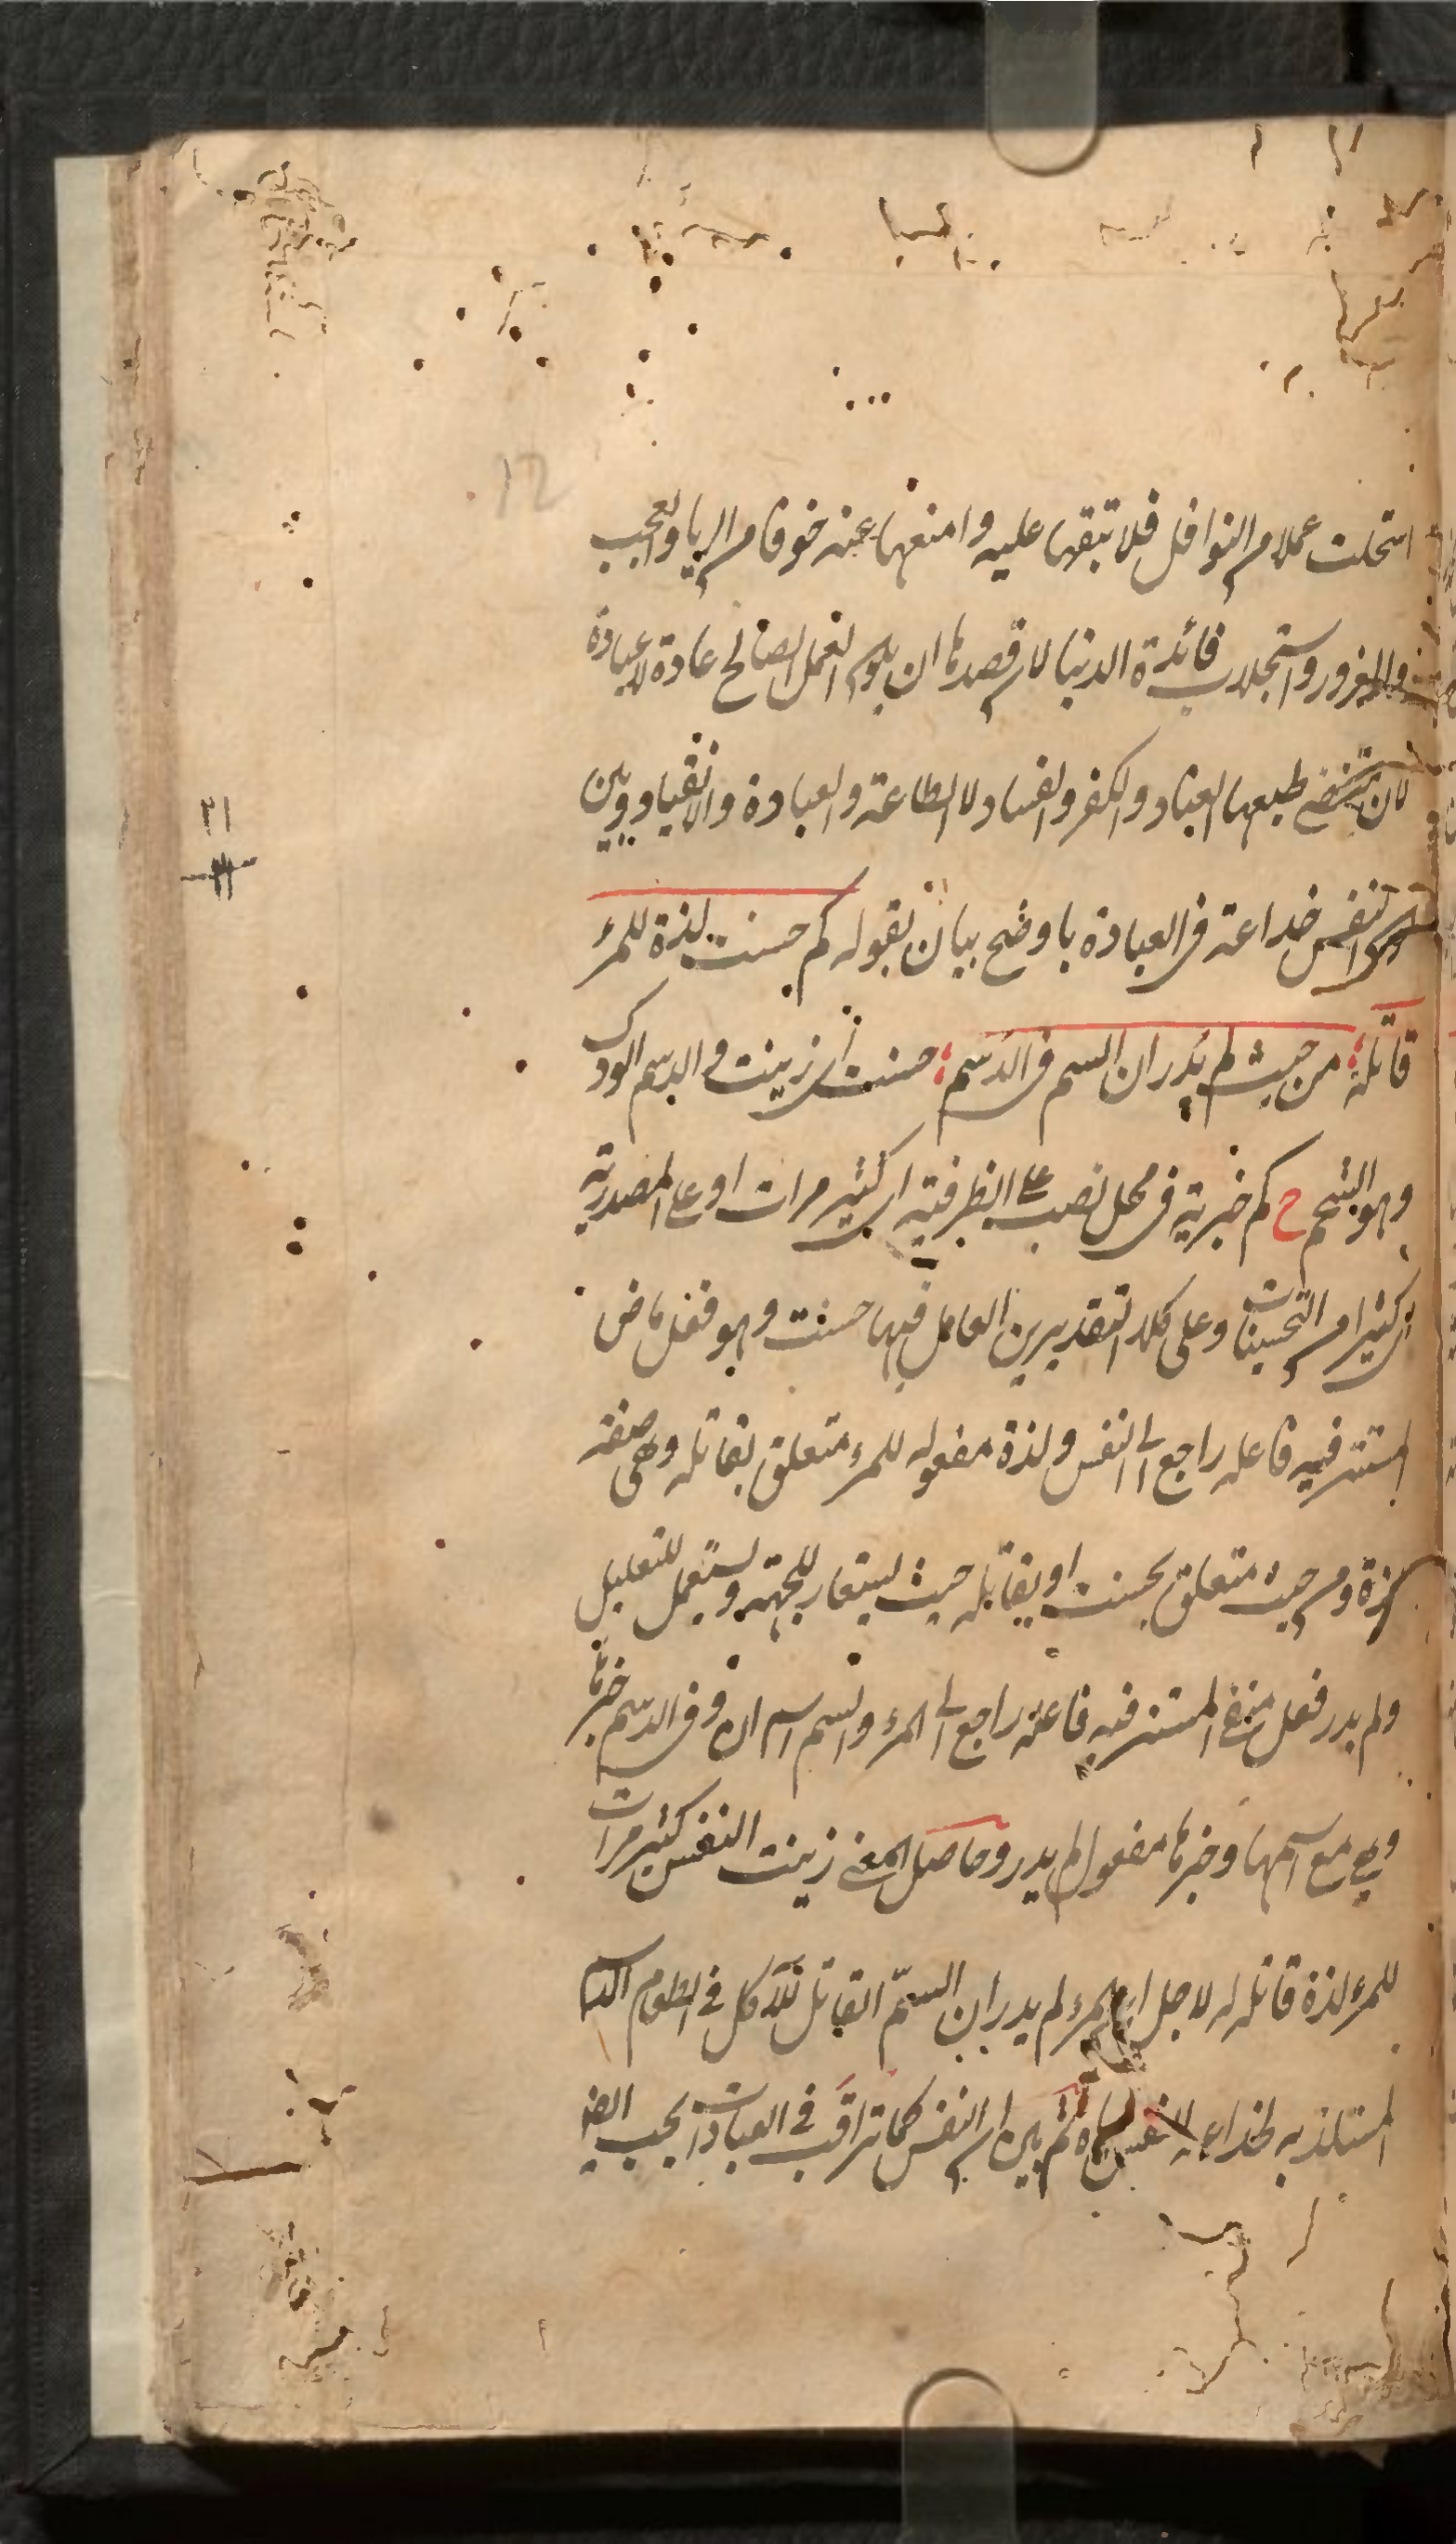 12
استحلت عملا من النوافل فلا تبقها عليه وامنعها عنه خوفا من الريا والعجب
والغرور واستجلاب فائدة الدنيا لان قصدها ان يكون العمل الصالح عادة لا عبادة
لان مقتضى طبعها العناد والكفر والفساد لا الطاعة والعبادة والانقياد وبين
كون النفس خداعة فى العبادة باوضح بيان بقوله كم حسنت لذة للمرء
قاتلة من حيث لم يدر ان السم فى الدسم حسنت اى زينت والدسم الودك
وهو الشحم ح كم خبرية فى محل نصب على الظرفية اى كثير مرات او على المصدرية
اى كثيرا من التحسينات وعلى كلا التقديرين العامل فيها حسنت وهو فعل ماض
المستتر فيه فاعله راجع الى النفس ولذة مفعوله للمرء متعلق بقاتلة وهى صفة
لذة ومن حيث متعلق بحسنت او بقاتلة حيث يستعار للجهة ويستعمل للتعليل
ولم يدر فعل منفى المستتر فيه فاعله راجع الى المرء والسم اسم ان وفى الدسم خبرها
وهى مع اسمها وخبرها مفعول لم يدر وحاصل المعنى زينت النفس كثير مرات
للمرء لذة قاتلة له لاجل ان المرء لم يدر ان السمّ القاتل للآكل فى الطعام
المستلذ به لخداعة النفس اياه ثم بين ان النفس كما تراقب فى العبادات يجب
٢١